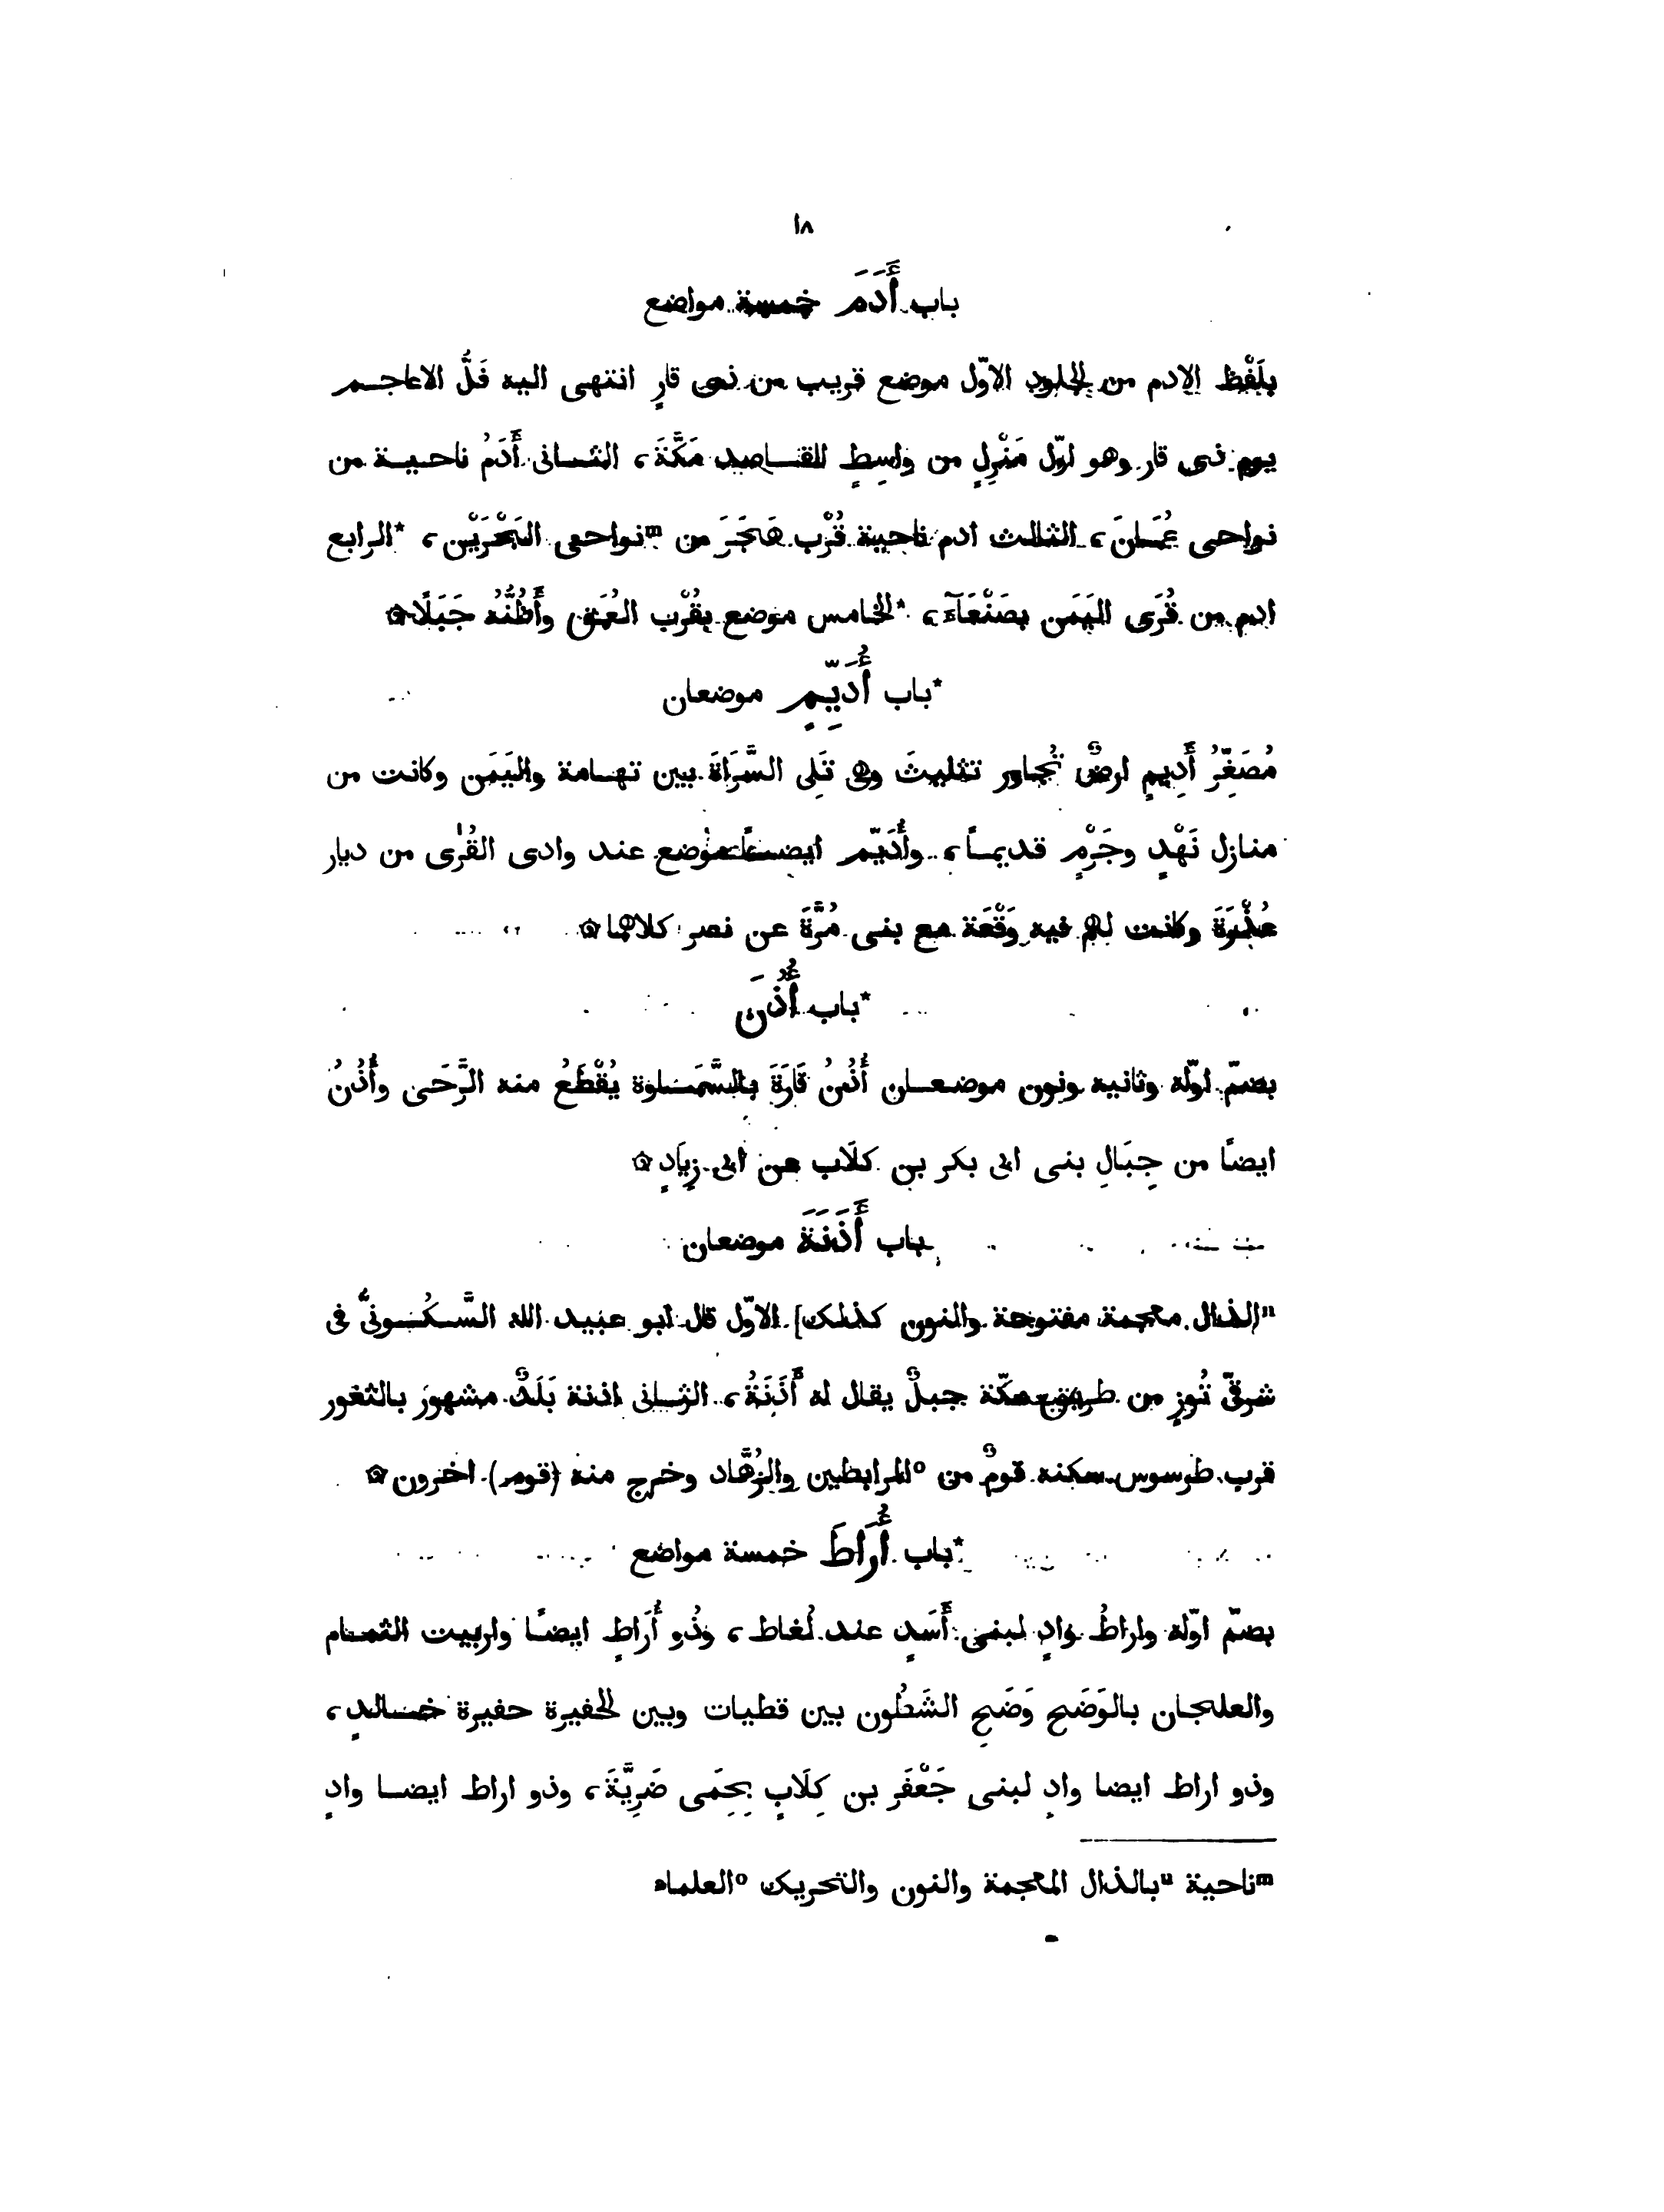 ١٨
باب أَدَمَ خمسة مواضع
بلَفْظ الادم من الجلود الاوّل موضع قريب من ذى قارٍ انتهى اليه فَلُّ الاعاجم
يوم ذى قار وهو اوّل مَنْزِلٍ من واسِطٍ للقاصد مَكَّةَ، الثانى أَدَمُ ناحية من
نواحى عُمَانَ، الثالث ادم ناحية قُرْب هَجَرَ من ᵐنواحى البَحْرَيْن، *الرابع
ادم من قُرَى اليَمَن بصَنْعَآءَ، *الخامس موضع بقُرْب العُمَق وأَظُنُّهُ جَبَلًا ۞
*باب أُدَيِّمٍ موضعان
مُصَغَّرُ أَدِيمٍ ارضٌ تُجاور تثليثَ وهى تَلِى السَّرَاةَ بين تهامة واليَمَن وكانت من
منازل نَهْدٍ وجَرْمٍ قديماً، وأُدَيّم ايضاً موضع عند وادى القُرٰى من ديار
عُذْرَةَ وكانت لهم فيه وَقْعَة مع بنى مُرَّةَ عن نصر كلاهما ۞
*باب أُذُنَ
بضمّ اوّله وثانيه ونون موضعان أُذُنُ قَارَةَ بالسَّمَاوة يُقْطَعُ منه الرَّحَى وأُذُنُ
ايضاً من جِبَالِ بنى ابى بكر بن كلَاب عن ابى زِيَادٍ ۞
باب أَذَنَةَ موضعان
ⁿ[الذال معجمة مفتوحة والنون كذلك] الاوّل قال ابو عبيد الله السَّكُونىُّ فى
شرقىّ تُوزٍ من طريق مكّة جبلٌ يقال له أَذَنَةُ، الثانى اذنة بَلَدٌ مشهور بالثغور
قرب طرسوس سكنه قومٌ من ᵒالمرابطين والزُهَّاد وخرج منه (قوم) اخرون ۞
*باب أُرَاطَ خمسة مواضع
بضمّ اوّله واراطُ وادٍ لبنى أَسَدٍ عند لُغاط، وذُو أُرَاطٍ ايضاً وادٍ ينبت الثمام
والعلجان بالوَضَح وَضَحِ الشَطُون بين قطيات وبين الحفيرة حفيرة خالدٍ،
وذو اراط ايضا وادٍ لبنى جَعْفَر بن كِلَابٍ بحِمَى ضَرِيَّةَ، وذو اراط ايضا وادٍ
ᵐناحية ⁿبالذال المعجمة والنون والتحريك ᵒالعلماء